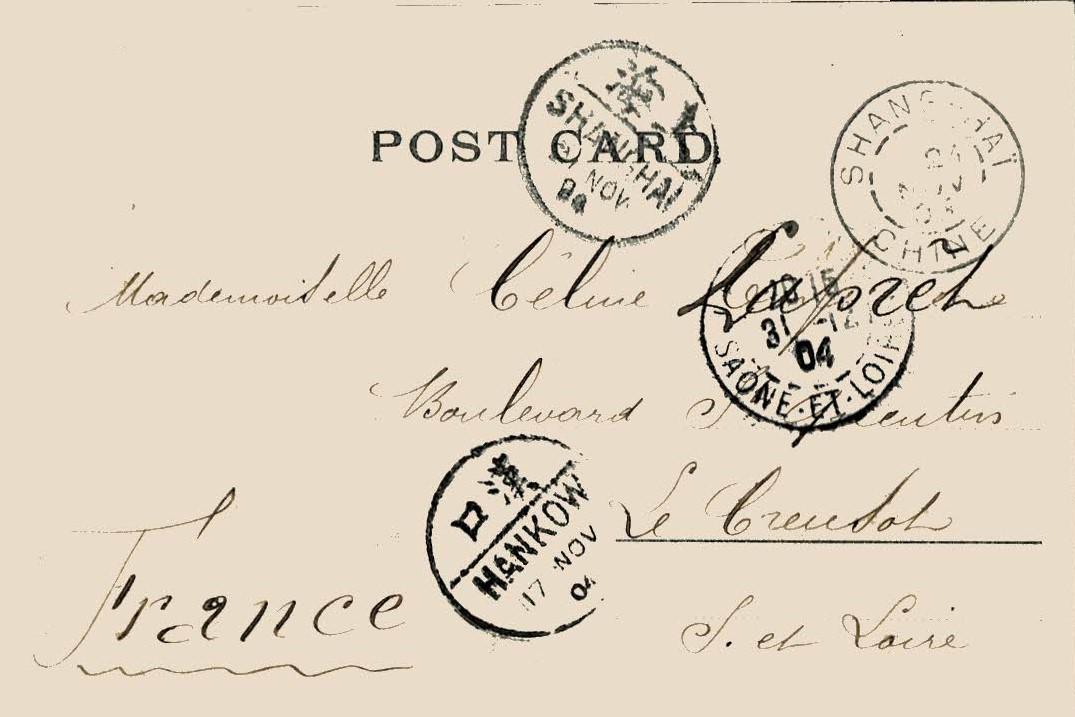 POST CARD.
上海
SHANGHAI
NOV
04
SHANG-HAÏ
CHINE
Mademoiselle Céline
31 -12
04
SAÔNE-ET-LOIRE
Boulevard
漢口
HANKOW
17 NOV
04
Le Creusot
France
S. et Loire